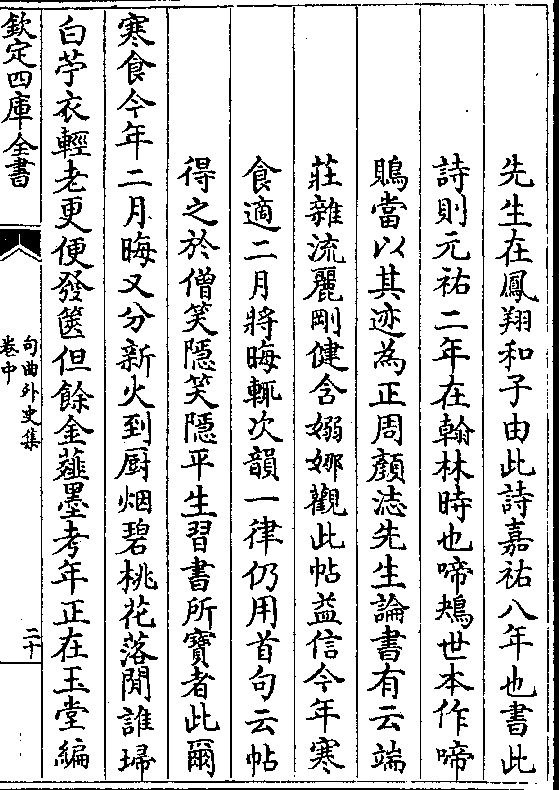 先生在鳳翔和子由此詩嘉祐八年也書此
詩則元祐二年在翰林時也啼鴂世本作啼
鵙當以其迹為正周顏泚先生論書有云端
莊雜流麗剛健含嫋娜觀此帖益信今年寒
食適二月將晦輒次韻一律仍用首句云帖
得之於僧笑隱笑隱平生習書所寶者此爾
寒食今年二月晦又分新火到厨烟碧桃花落閒誰埽
白苧衣輕老更便發篋但餘金薤墨考年正在玉堂編
欽定四庫全書
句曲外史集
卷中
二十